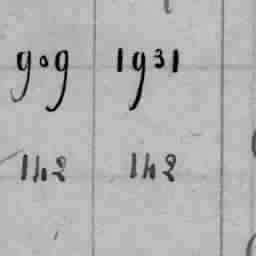 909 1931
142 142